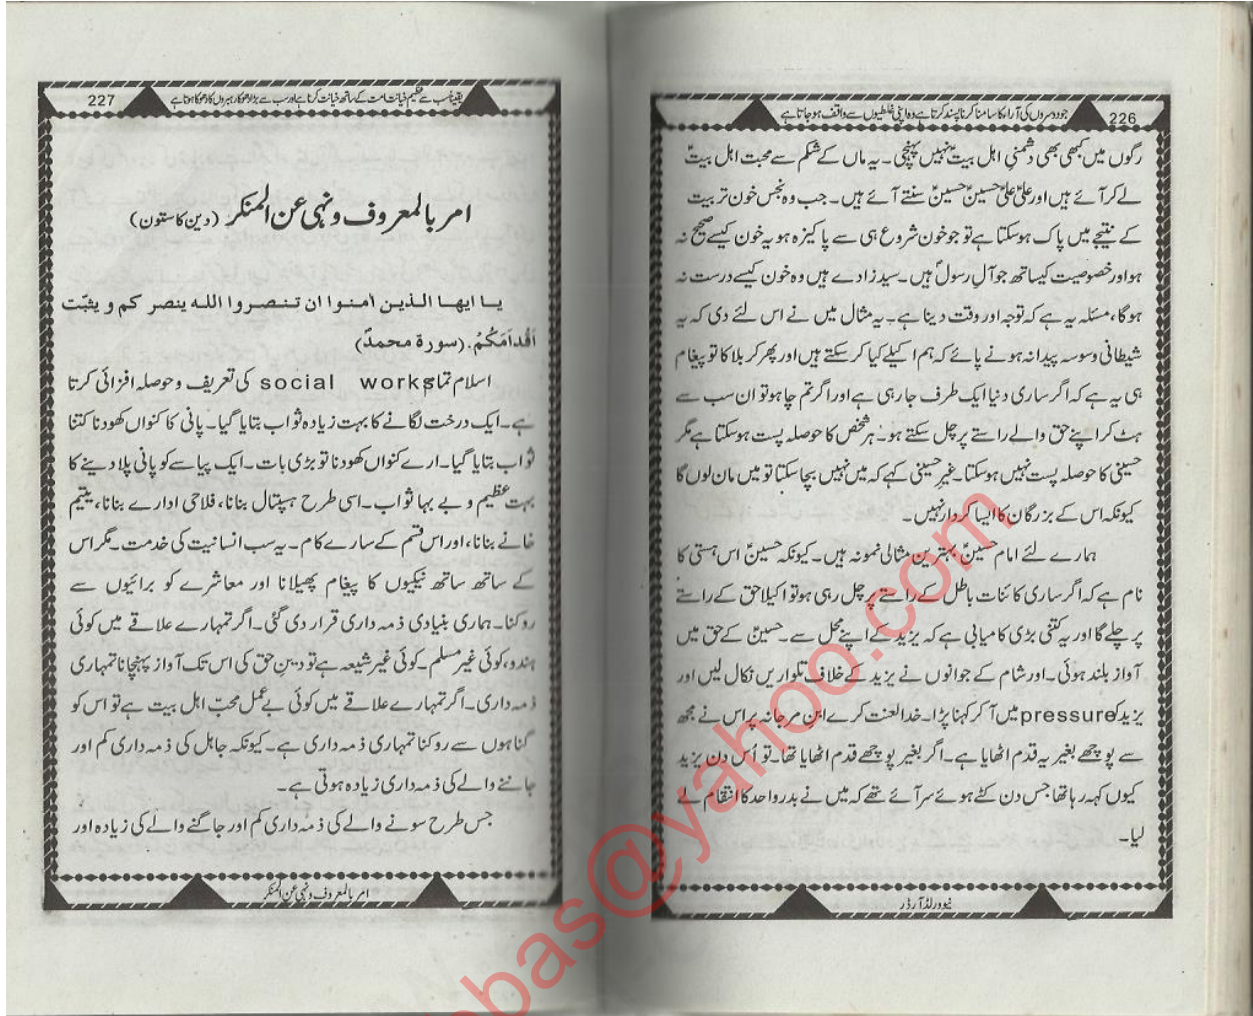 226
جو دوسروں کی آراء کا سامنا کرنا پسند کرتا ہے وہ اپنی غلطیوں سے واقف ہو جاتا ہے
رگوں میں کبھی بھی دشمنیِ اہل بیتؑ نہیں پہنچی۔ یہ ماں کے شکم سے محبت اہل بیتؑ
لے کر آئے ہیں اور علیؑ علیؑ حسینؑ حسینؑ سنتے آئے ہیں۔ جب وہ نجس خون تربیت
کے نتیجے میں پاک ہو سکتا ہے تو جو خون شروع ہی سے پاکیزہ ہو یہ خون کیسے صحیح نہ
ہو اور خصوصیت کیساتھ جو آلِ رسولؐ ہیں۔ سید زادے ہیں وہ خون کیسے درست نہ
ہوگا، مسئلہ یہ ہے کہ توجہ اور وقت دینا ہے۔ یہ مثال میں نے اس لئے دی کہ یہ
شیطانی وسوسہ پیدا نہ ہونے پائے کہ ہم اکیلے کیا کر سکتے ہیں اور پھر کربلا کا تو پیغام
ہی یہ ہے کہ اگر ساری دنیا ایک طرف جا رہی ہے اور اگر تم چاہو تو ان سب سے
ہٹ کر اپنے حق والے راستے پر چل سکتے ہو۔ ہر شخص کا حوصلہ پست ہو سکتا ہے مگر
حسینی کا حوصلہ پست نہیں ہو سکتا۔ غیر حسینی کہے کہ میں نہیں بچا سکتا تو میں مان لوں گا
کیونکہ اس کے بزرگان کا ایسا کردار نہیں۔
ہمارے لئے امام حسینؑ بہترین مثالی نمونہ ہیں۔ کیونکہ حسینؑ اس ہستی کا
نام ہے کہ اگر ساری کائنات باطل کے راستے پر چل رہی ہو تو اکیلا حق کے راستے
پر چلے گا اور یہ کتنی بڑی کامیابی ہے کہ یزید کے اپنے محل سے۔ حسینؑ کے حق میں
آواز بلند ہوئی۔ اور شام کے جوانوں نے یزید کے خلاف تلواریں نکال لیں اور
یزید کو pressure میں آ کر کہنا پڑا۔ خدا لعنت کرے ابن مرجانہ پر اس نے مجھ
سے پوچھے بغیر یہ قدم اٹھایا ہے۔ اگر بغیر پوچھے قدم اٹھایا تھا۔ تو اُس دن یزید
کیوں کہہ رہا تھا جس دن کٹے ہوئے سر آئے تھے کہ میں نے بدر و احد کا انتقام لے
لیا۔
نیو ورلڈ آرڈر
227
یقیناً سب سے عظیم خیانت امت کے ساتھ خیانت کرنا ہے اور سب سے بڑا دھوکا رہبروں کا دھوکا ہوتا ہے
امر بالمعروف و نہی عن المنکر (دین کا ستون)
یا ایھا الذین آمنوا ان تنصروا الله ینصرکم و یثبّت
اَقْدَامَکُمْ. (سورۃ محمدؐ)
اسلام تمام social works کی تعریف و حوصلہ افزائی کرتا
ہے۔ ایک درخت لگانے کا بہت زیادہ ثواب بتایا گیا۔ پانی کا کنواں کھودنا کتنا
ثواب بتایا گیا۔ ارے کنواں کھودنا تو بڑی بات۔ ایک پیاسے کو پانی پلا دینے کا
بہت عظیم و بے بہا ثواب۔ اسی طرح ہسپتال بنانا، فلاحی ادارے بنانا، یتیم
خانے بنانا، اور اس قسم کے سارے کام۔ یہ سب انسانیت کی خدمت۔ مگر اس
کے ساتھ ساتھ نیکیوں کا پیغام پھیلانا اور معاشرے کو برائیوں سے
روکنا۔ ہماری بنیادی ذمہ داری قرار دی گئی۔ اگر تمہارے علاقے میں کوئی
ہندو، کوئی غیر مسلم۔ کوئی غیر شیعہ ہے تو دینِ حق کی اس تک آواز پہنچانا تمہاری
ذمہ داری۔ اگر تمہارے علاقے میں کوئی بے عمل محبّ اہل بیت ہے تو اس کو
گناہوں سے روکنا تمہاری ذمہ داری ہے۔ کیونکہ جاہل کی ذمہ داری کم اور
جاننے والے کی ذمہ داری زیادہ ہوتی ہے۔
جس طرح سونے والے کی ذمہ داری کم اور جاگنے والے کی زیادہ اور
امر بالمعروف و نہی عن المنکر
bas@yahoo.com